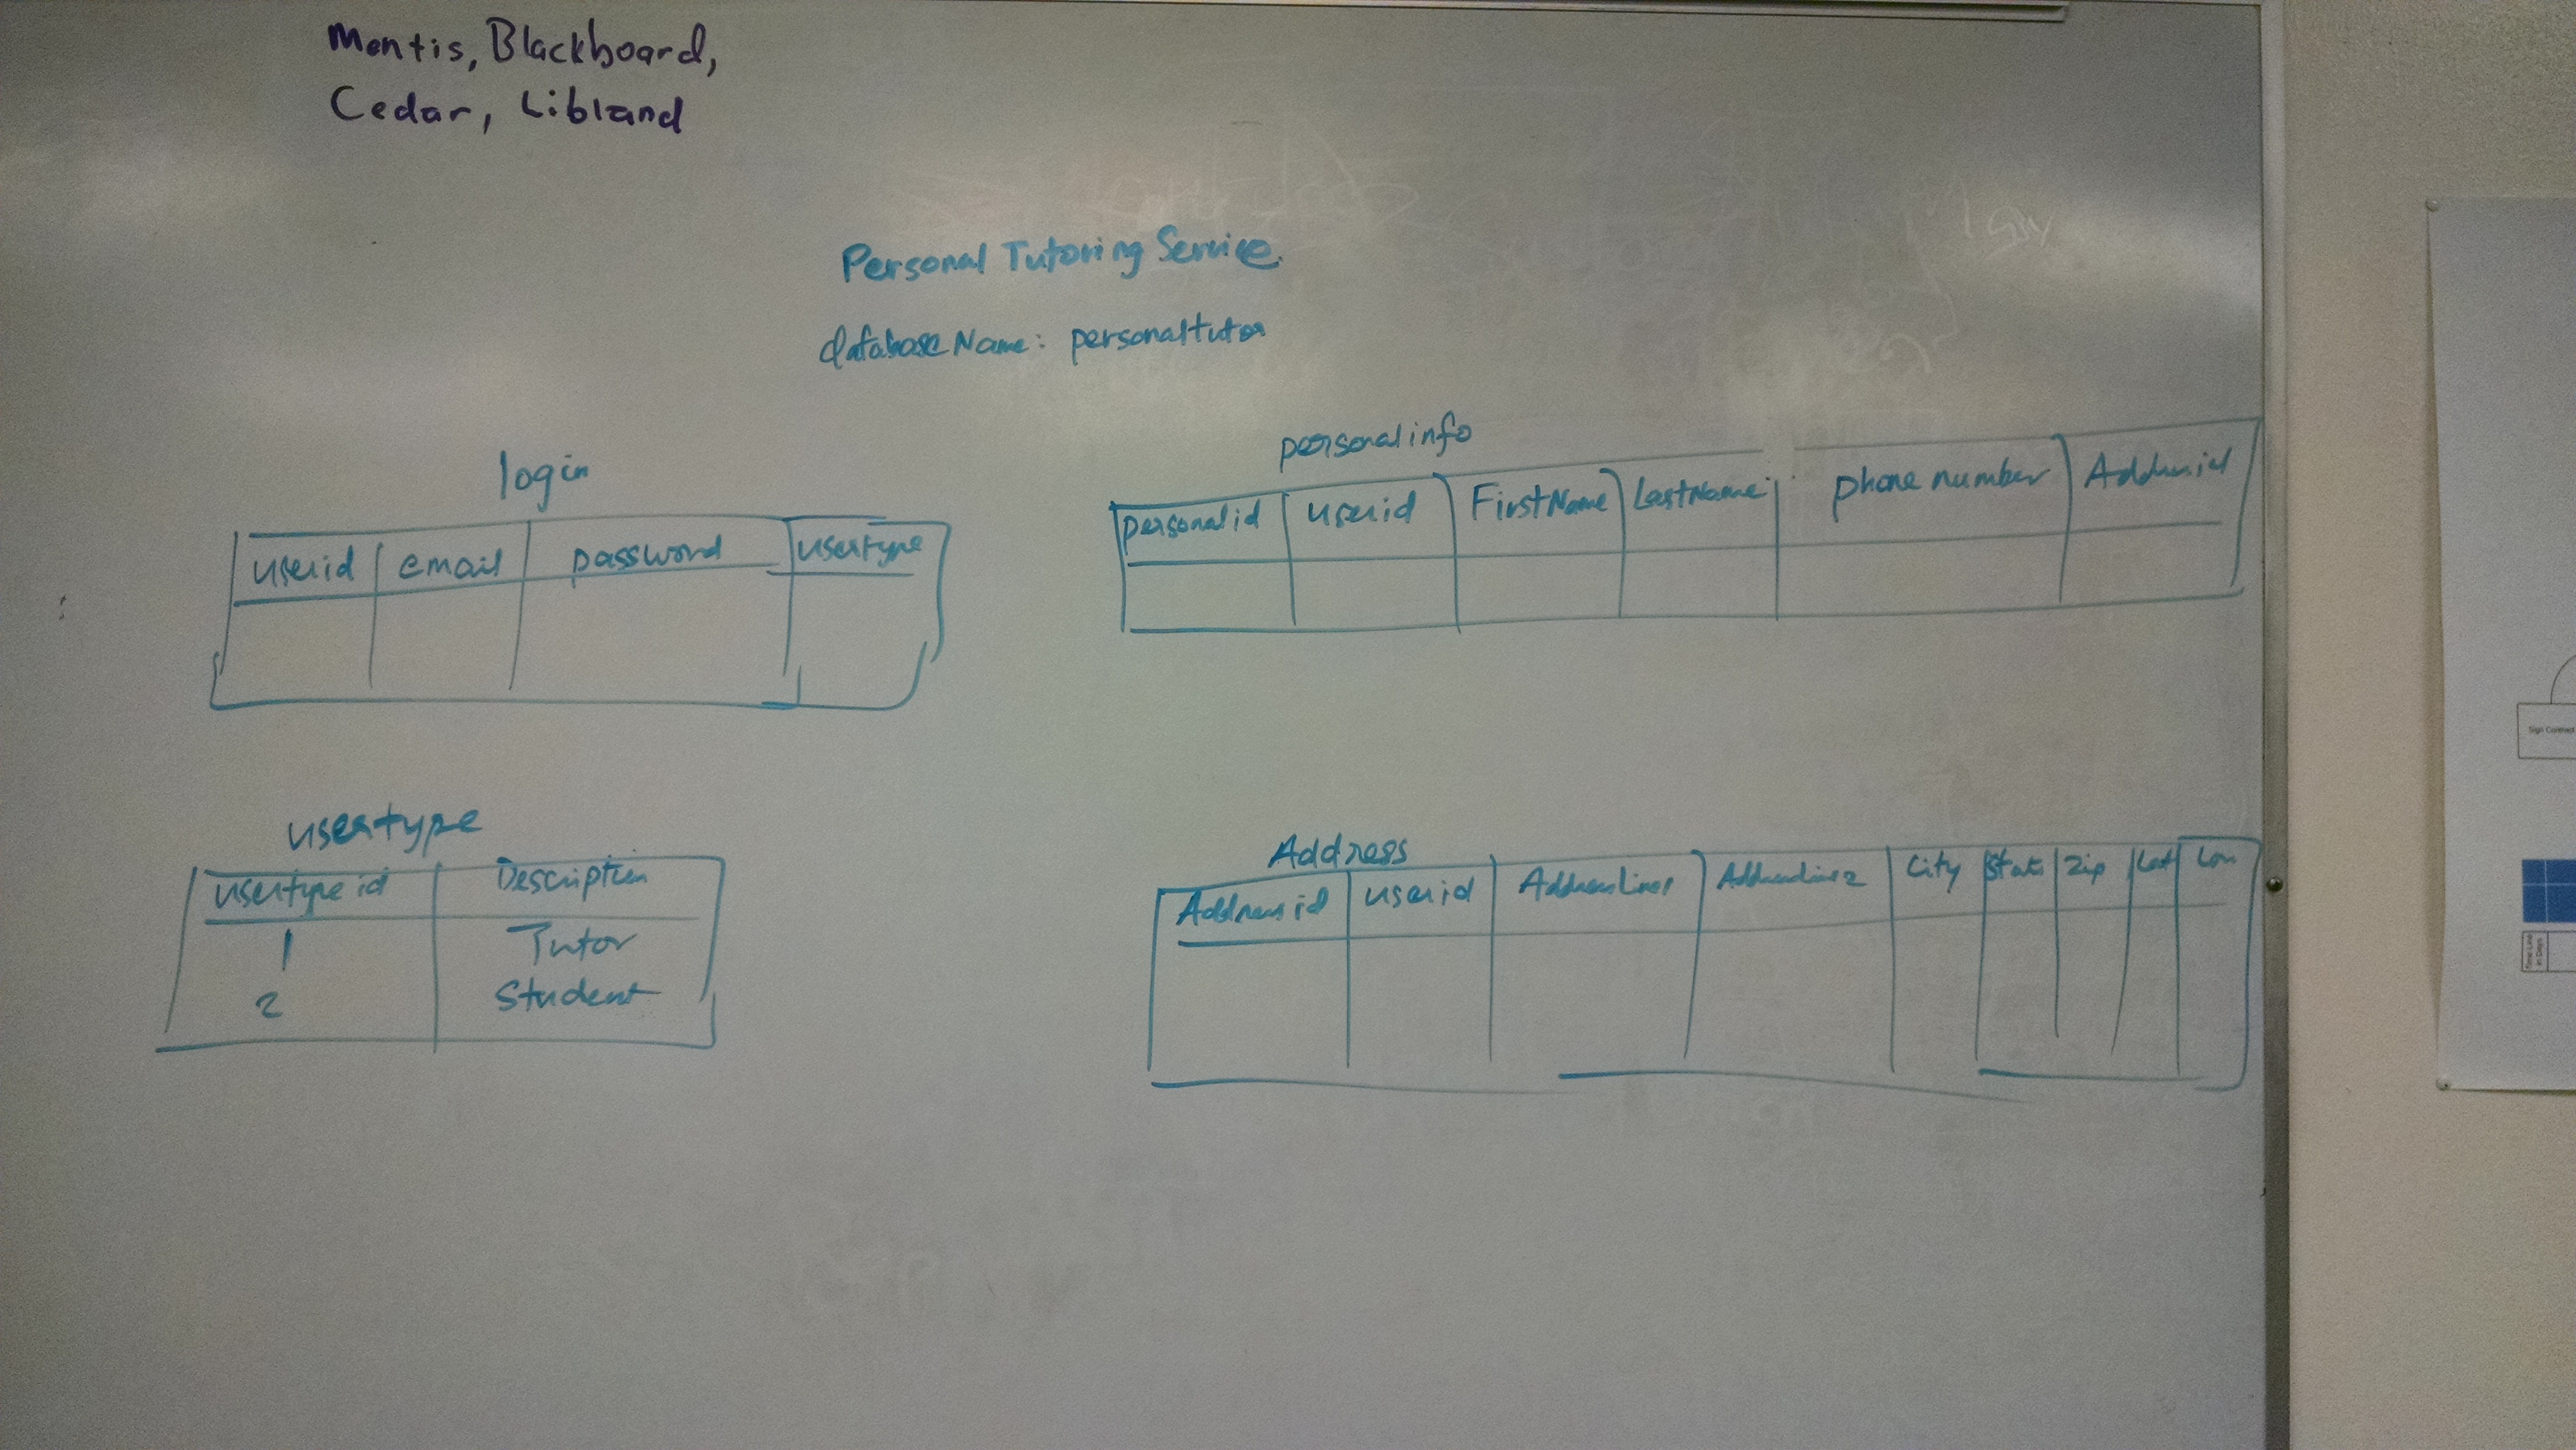 Mantis, Blackboard,
Cedar, Libland
Personal Tutoring Service
database Name: personaltutor
login
userid email password usertype
personalinfo
personalid userid FirstName LastName phone number Addressid
usertype
usertype id Description
1 Tutor
2 Student
Address
Address id userid AddressLine1 AddressLine2 City State Zip Lat Lon
Sign Contract
Time Line
in Days